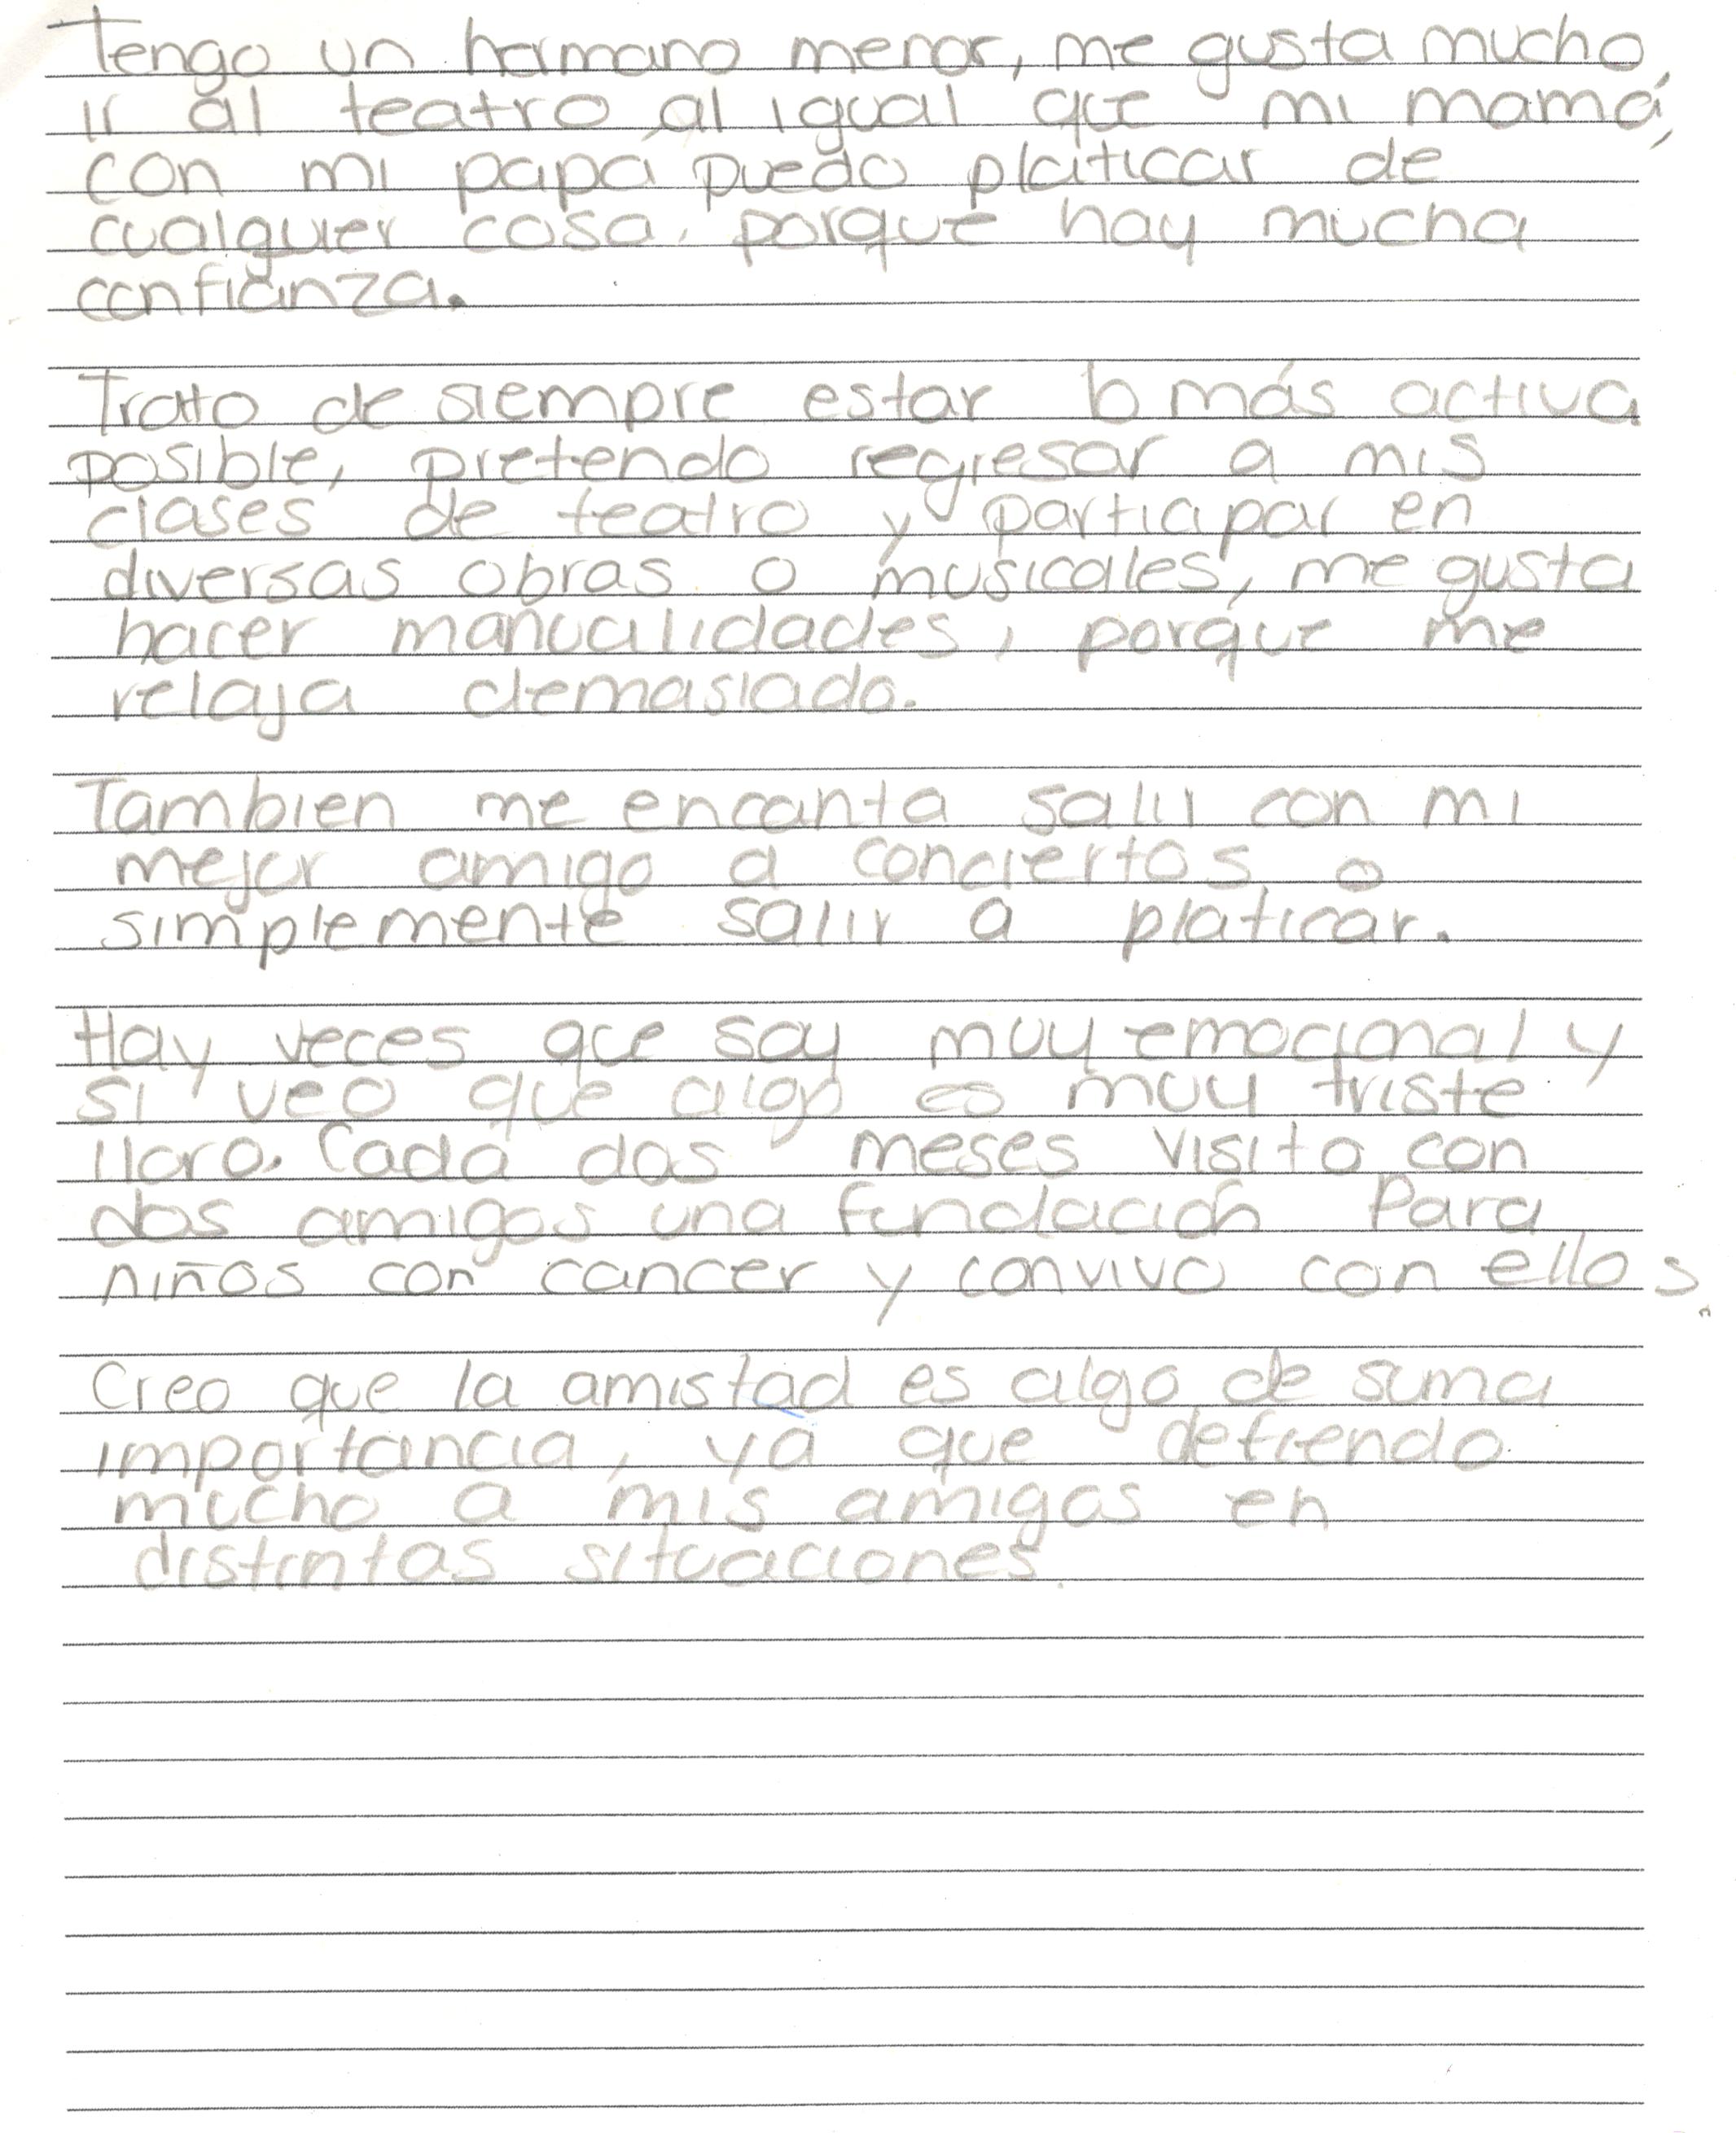 Tengo un hermano menor, me gusta mucho
ir al teatro al igual que mi mamá,
con mi papá puedo platicar de
cualquier cosa, porque hay mucha
confianza.
Trato de siempre estar lo más activa
posible, pretendo regresar a mis
clases de teatro y participar en
diversas obras o musicales, me gusta
hacer manualidades, porque me
relaja demasiado.
Tambien me encanta salir con mi
mejor amigo a conciertos o
simplemente salir a platicar.
Hay veces que soy muy emocional y
si veo que algo es muy triste
lloro. Cada dos meses visito con
dos amigos una fundación Para
niños con cancer y convivo con ellos.
Creo que la amistad es algo de suma
importancia, ya que defiendo
mucho a mis amigos en
distintas situaciones.